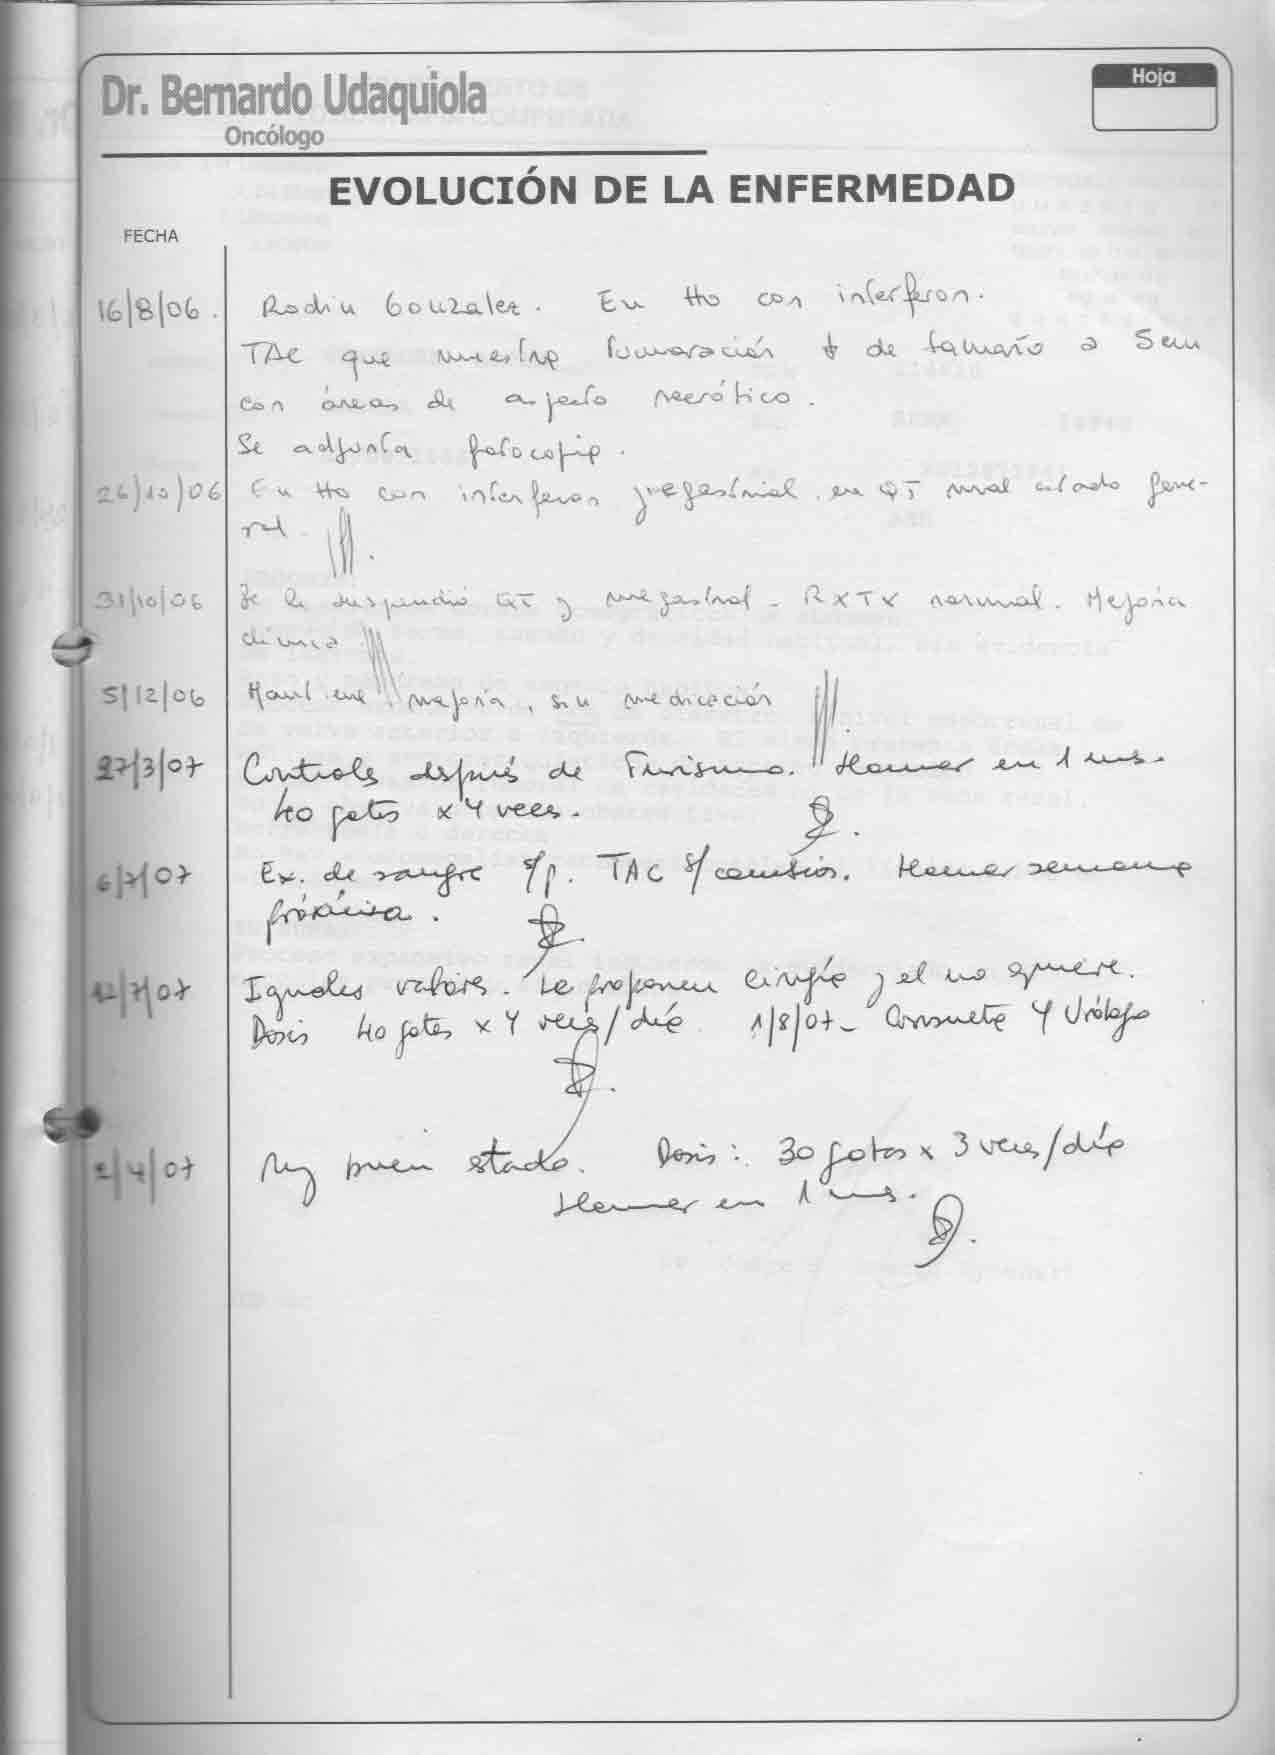 Dr. Bernardo Udaquiola
Oncólogo
Hoja
EVOLUCIÓN DE LA ENFERMEDAD
FECHA
16/8/06. Rodiu Gonzalez. En tto con interferon.
TAC que muestra tumoración ↓ de tamaño a 5cm
con áreas de aspecto necrótico.
Se adjunta fotocopia.
26/10/06 En tto con interferon y megestrial, en QT mal estado gene-
ral.
31/10/06 Se le suspendió QT y megastrol - RxTx normal. Mejoria
clinica
5/12/06 Mantiene mejoría, sin medicación
27/3/07 Controls después de Turismo. Llamar en 1 mes.
40 gotas x 4 veces.
6/7/07 Ex. de sangre s/p. TAC s/cambios. Llamar semana
próxima.
12/7/07 Iguales valores. Le proponen cirugía y el no quiere.
Dosis 40 gotas x 4 veces/día 1/8/07- Consulta 4 Urólogo
2/4/07 Muy buen estado. Dosis: 30 gotas x 3 veces/día
Llamar en 1 mes.